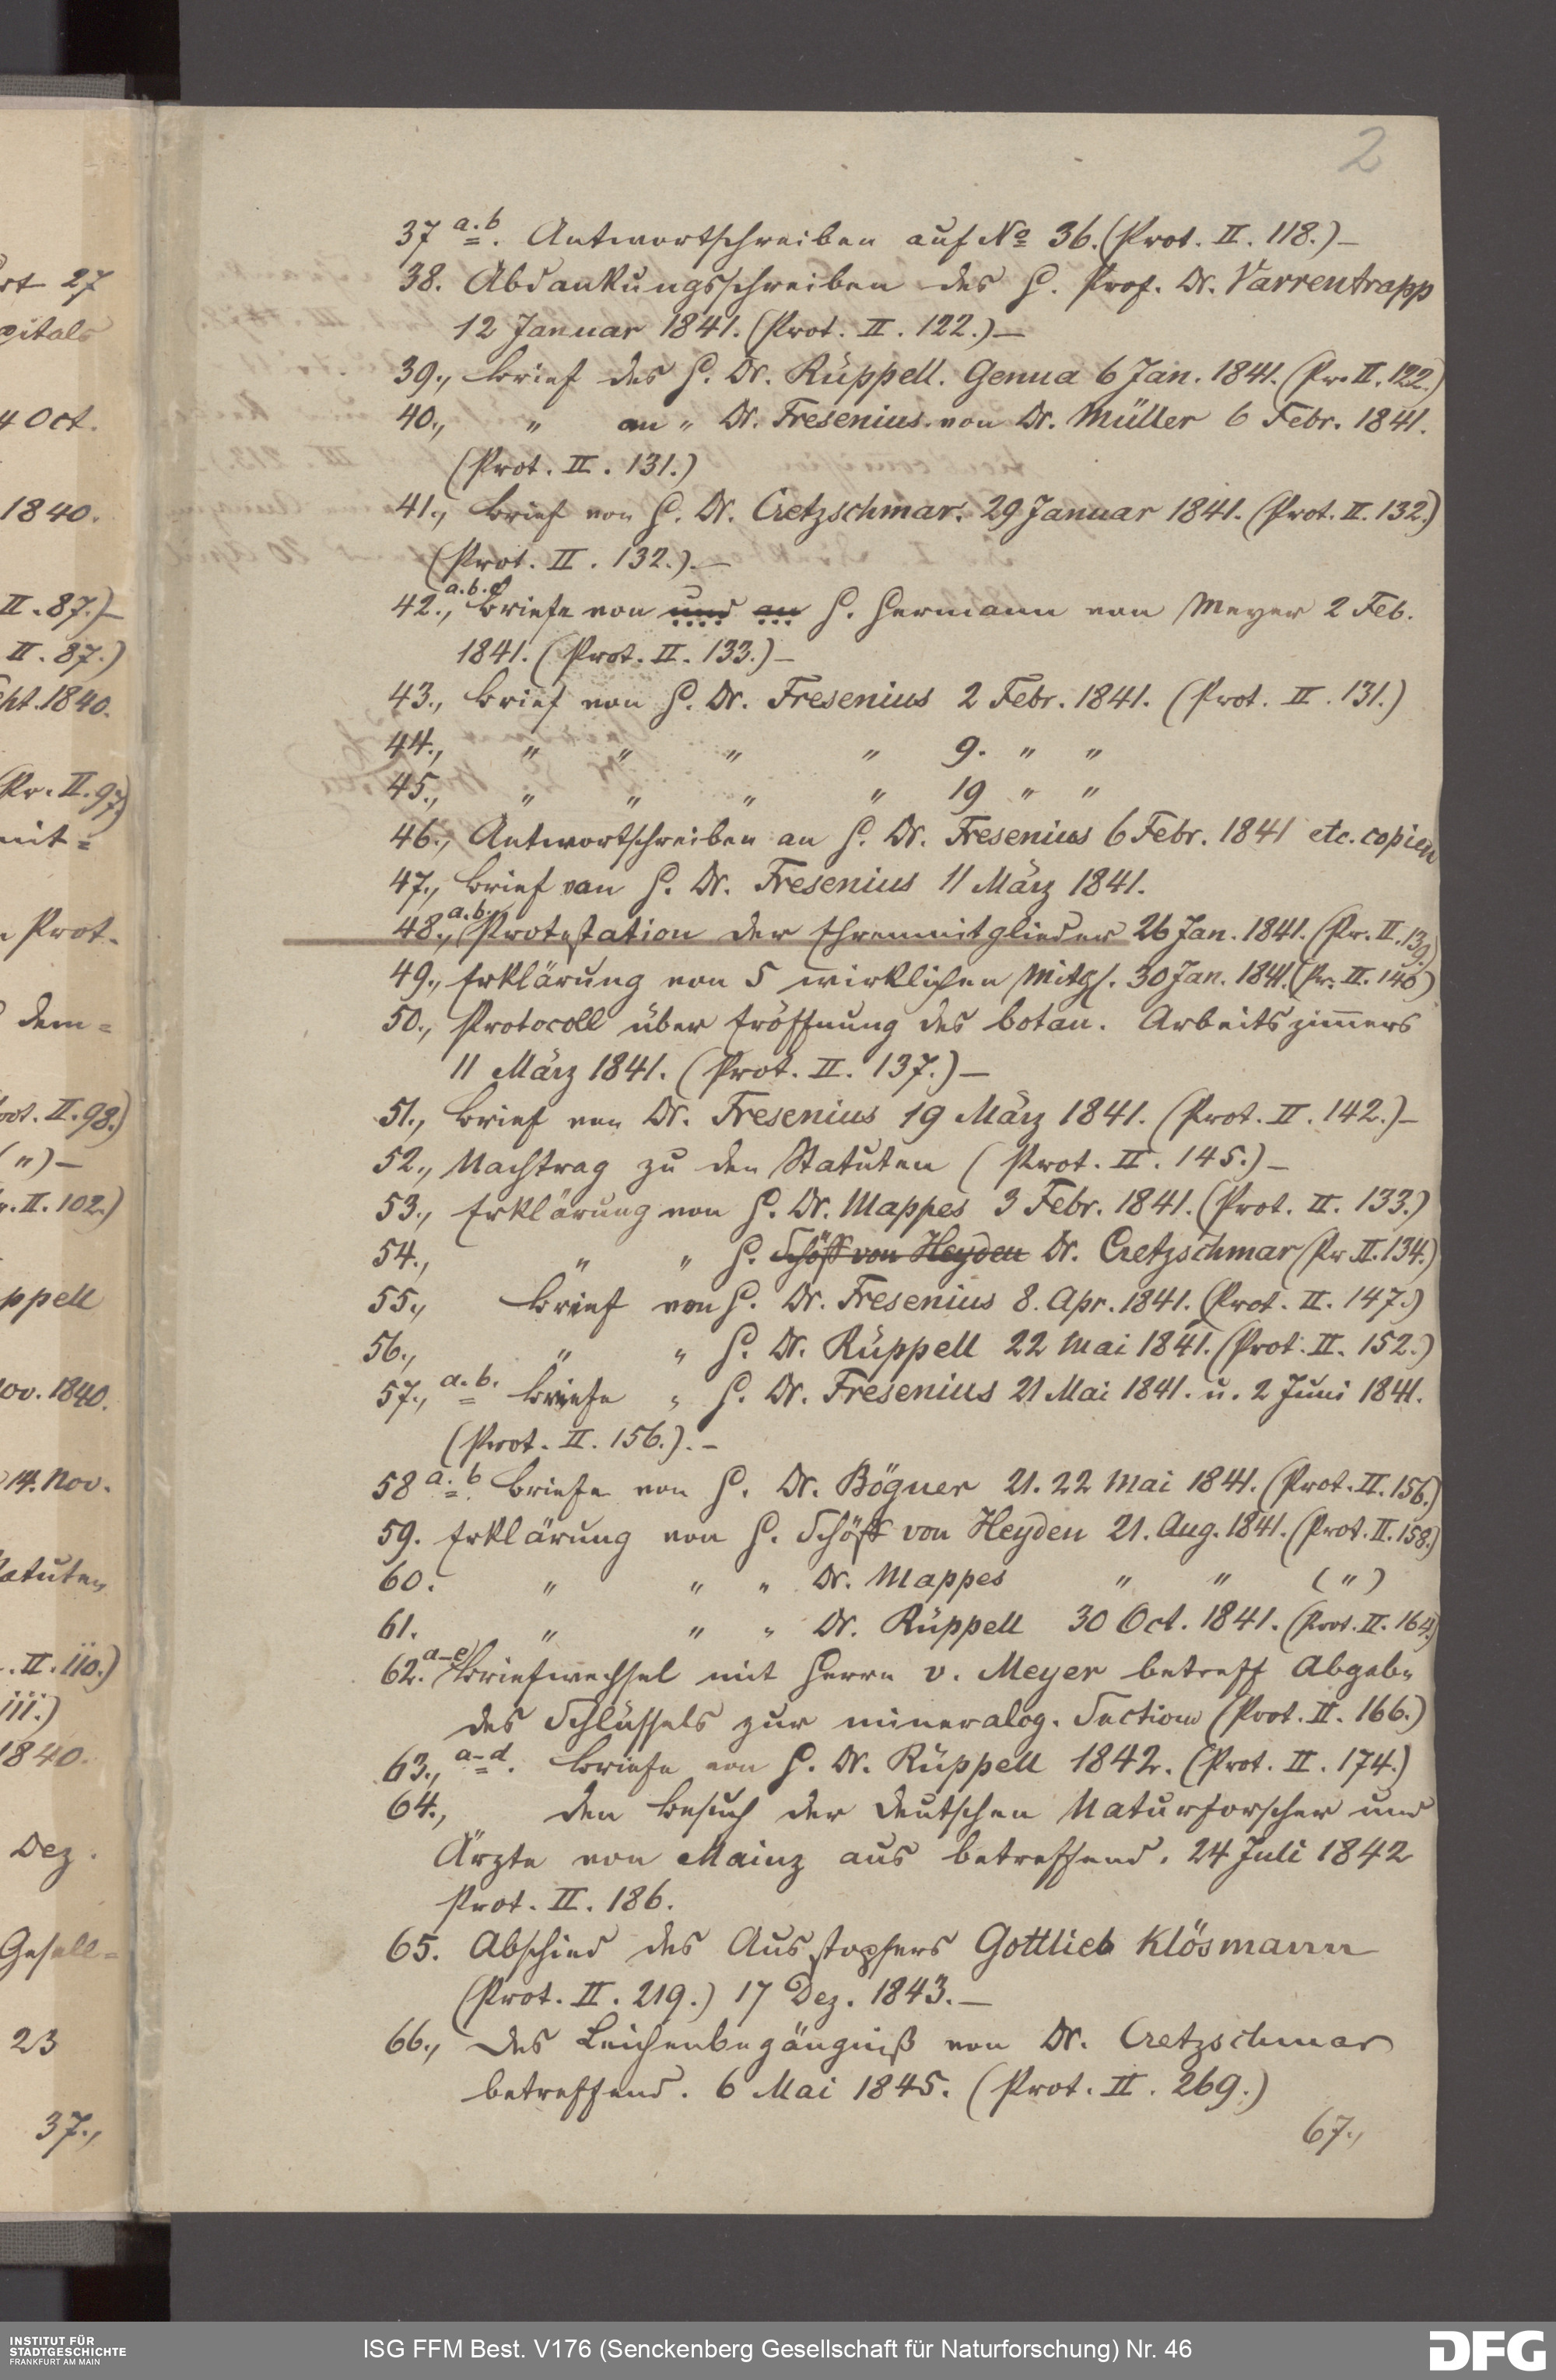 2
37 a.b. Antwortschreiben auf No 36. (Prot. II. 118.) –
38. Abdankungsschreiben des H. Prof. Dr. Varrentrapp
12 Januar 1841. (Prot. II. 122.) –
39., Brief des H. Dr. Rüppell. Genua 6 Jan. 1841. (Pr. II. 122.)
40., " an " Dr. Fresenius von Dr. Müller 6 Febr. 1841.
(Prot. II. 131.)
41., Brief von H. Dr. Cretzschmar. 29 Januar 1841. (Prot. II. 132.)
(Prot. II. 132.). –
42., a.b. Briefe von und an H. Hermann von Meyer 2 Feb.
1841. (Prot. II. 133.) –
43., Brief von H. Dr. Fresenius 2 Febr. 1841. (Prot. II. 131.)
44., " " " " 9. " "
45., " " " " 19 " "
46., Antwortschreiben an H. Dr. Fresenius 6 Febr. 1841 etc. copien
47., Brief von H. Dr. Fresenius 11 März 1841.
48., a.b. Protestation der Ehrenmitglieder 26 Jan. 1841. (Pr. II. 139.)
49., Erklärung von 5 wirklichen Mitgl. 30 Jan. 1841. (Pr. II. 140)
50., Protocoll über Eröffnung des botan. Arbeitszim̅ers
11 März 1841. (Prot. II. 137.) –
51., Brief von Dr. Fresenius 19 März 1841. (Prot. II. 142.) –
52., Nachtrag zu den Statuten (Prot. II. 145.) –
53., Erklärung von H. Dr. Mappes 3 Febr. 1841. (Prot. II. 133.)
54., " " H. Schöff von Heyden Dr. Cretzschmar (Pr. II. 134.)
55., Brief von H. Dr. Fresenius 8. Apr. 1841. (Prot. II. 147.)
56., " " H. Dr. Rüppell 22 Mai 1841. (Prot. II. 152.)
57., a.b. Briefe " H. Dr. Fresenius 21 Mai 1841. u. 2 Juni 1841.
(Prot. II. 156.). –
58 a.b. Briefe von H. Dr. Bögner 21. 22 Mai 1841. (Prot. II. 156.)
59. Erklärung von H. Schöff von Heyden 21. Aug. 1841. (Prot. II. 158.)
60. " " " Dr. Mappes " " (")
61. " " " Dr. Rüppell 30 Oct. 1841. (Prot. II. 164.)
62. a–e Briefwechsel mit Herrn v. Meyer betreff Abgabe
des Schlüssels zur mineralog. Section (Prot. II. 166.)
63., a–d. Briefe von H. Dr. Rüppell 1842. (Prot. II. 174.)
64., den Besuch der deutschen Naturforscher und
Ärzte von Mainz aus betreffend. 24 Juli 1842
Prot. II. 186.
65. Abschied des Ausstopfers Gottlieb Klösmann
(Prot. II. 219.) 17 Dez. 1843. –
66., Des Leichenbegängniß von Dr. Cretzschmar
betreffend. 6 Mai 1845. (Prot. II. 269.)
67.,
INSTITUT FÜR
STADTGESCHICHTE
FRANKFURT AM MAIN
ISG FFM Best. V176 (Senckenberg Gesellschaft für Naturforschung) Nr. 46
DFG